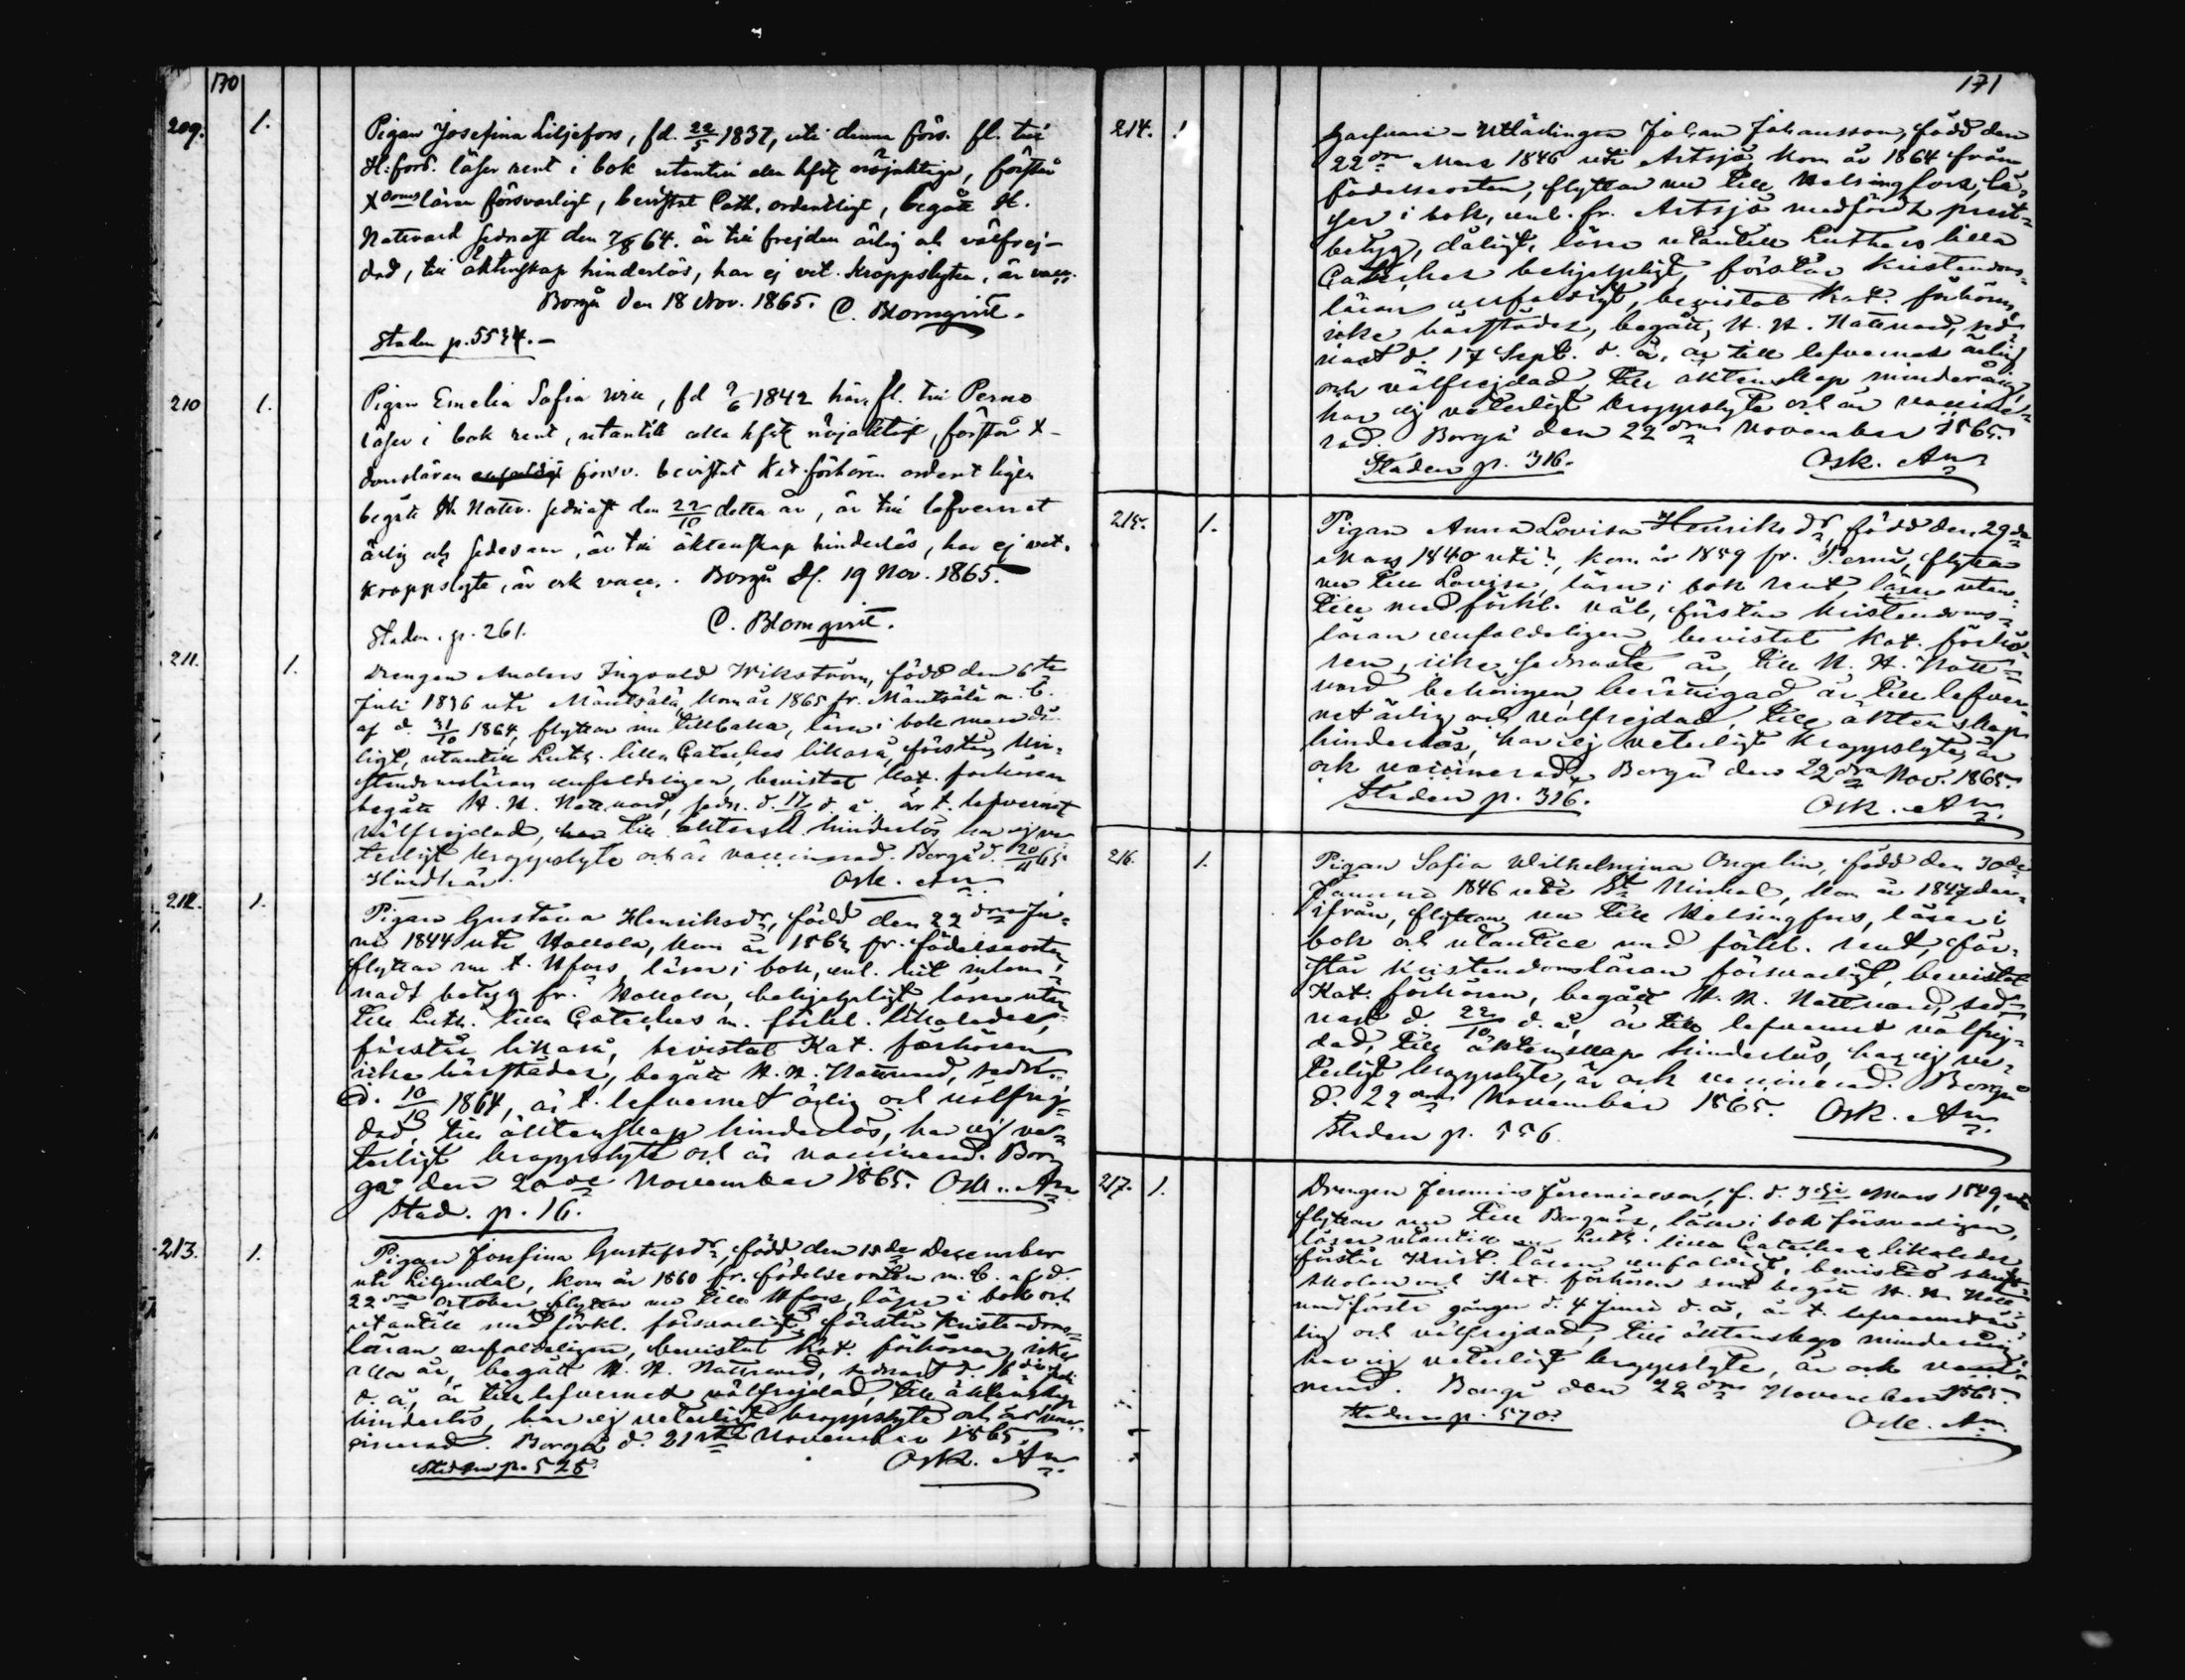 170
209. 1. Pigan Josefina Liljefors, fd. 22/5 1837, uti denna förs. fl. till
H:fors. läser rent i bok utantill alla hfst nöjaktige, förstår
Xdoms läran försvarligt, bevistat Cath. ordentligt, begått H.
Nattvard sednast den 7/8 64. är till frejden ärlig och välfrej-
dad, till äktenskap hinderlös, har ej vet. kroppslyten, är vacc.
Borgå den 18 Nov. 1865. C. Blomqvist.
Staden p. 553 4. -
210 1. Pigan Emelia Sofia , fd 9/6 1842 här, fl. till Perno
läser i bok rent, utantill alla hfst nöjaktigt, förstår X-
domsläran försv. bevistat Kat. förhören ordentligen
begått H. Nattv. sednast den 22/10 detta år, är till lefvernet
ärlig och sedesam, är till äktenskap hinderlös, har ej vet.
kroppslyte, är ock vacc. Borgå d. 19 Nov. 1865.
C. Blomqvist.
Staden. p. 261.
211. 1. Drengen Anders Ingvald Wikström, född den 6te
Juli 1836 uti Mäntsälä, kom år 1865 fr. Mäntsälä m. b.
af d. 31/10 1864, flyttar nu tillbaka, läser i bok
ligt, utantill Luth. lilla Cateches likaså, förstår kri-
stendomsläran enfaldeligen, bevistat Kat. förhören
begått H. H. Nattvard, sedn. d. d. å. är t. lefvernet
välfrejdad, till äktensk. hinderlös har ej ve-
terligt kroppslyte och är vaccinerad. Borgå d. 20/11 65
Hindhår. Osk. An
212. 1. Pigan Gustava Henriksdr, född den 22dra Ju-
ni 1844 uti Hollola, kom år fr. födelseorten,
flyttar nu t. Hfors, läser i bok, enl. hit inlem-
nadt betyg fr. Hollola, behjelpligt, läser utan
till Luth. lilla Cateches m. förkl. likaledes,
förstår likaså, bevistat Kat. förhören
icke härstädes, begått H. H. Nattvard, sedn.
d. 10/10 1864, är t. lefvernet ärlig och välfrej-
dad, till äktenskap hinderlös, har ej ve-
terligt kroppslyte och är vaccinerad. Bor-
gå den 20de November 1865. Osk. An
Stad. p. 16.
213. 1. Pigan Josefina Gustafsdr, född den 18de December
uti Liljendal, kom år 1860 fr. födelseorten m. b. af d.
22dra October, flyttar nu till Hfors, läser i bok och
utantill med förkl. försvarligt, förstår Kristendoms-
läran enfaldeligen, bevistat Kat. förhören, icke
alla år, begått H. H. Nattvard, sednast d.
d. å, är till lefvernet välfrejdad, till äktenskap
hinderlös, har ej veterligt kroppslyte och är vac-
cinerad. Borgå d. 21sta November 1865.
Staden p. 528. Osk. An
171
214. 1 Johan Johansson, född den
22dra Mars 1846 uti Artsjö, kom år 1864 från
födelseorten, flyttar nu till Helsingfors, lä-
ser i bok, enl. fr. Artsjö medfördt prest-
betyg, dåligt, läser utantill Luthers lilla
Cateches behjelpligt, förstår Kristendoms-
läran enfaldigt, bevistat Kat. förhören,
icke härstädes, begått, H. H. Nattvard, sed-
nast d. 17 Sept. d. å, är till lefvernet ärlig
och välfrejdad, till äktenskap minderårig,
har ej veterligt kroppslyte och är vaccine-
rad. Borgå den 22dra November 1865.
Staden p. 316. Osk. An
215. 1. Pigan Anna Lovisa Henriksdr, född den 29de
Mars 1840 uti ?, kom år 1859 fr. Pernå, flyttar
nu till Lovisa, läser i bok rent, läser utan-
till med förkl. väl, förstår kristendoms-
läran enfaldeligen, bevistat Kat. förhö-
ren, icke sednaste år, till H. H. Natt-
vard behörigen berättigad, är till lefver-
net ärlig och välfrejdad, till äktenskap
hinderlös, har ej veterligt kroppslyte, är
ock vaccinerad. Borgå den 22dra Nov. 1865.
Staden p. 316. Osk. An.
216. 1. Pigan Sofia Wilhelmina Ongelin, född den 30de
Januari 1846 uti St Michel, kom år 1847 der-
ifrån, flyttar nu till Helsingfors, läser i
bok och utantill med förkl. rent, för-
står Kristendomsläran försvarligt, bevistat
Kat. förhören, begått H. H. Nattvard, sed-
nast d. 22/10 d. å, är till lefvernet välfrej-
dad, till äktenskap hinderlös, har ej ve-
terligt kroppslyte, är ock vaccinerad. Borgå
d. 22dra November 1865. Osk. An.
Staden p. 556.
217. 1. Drengen Jeremias Jeremiasson, f. d. 3dje Mars 1849,
flyttar nu till Borgnäs, läser i bok försvarligen,
läser utantill Luth. lilla Cateches likaledes
förstår Krist. läran enfaldigt, bevistat skrift-
skolan och Kat. förhören samt begått H. H. Natt-
vard första gången d. 4 Juni d. å, är t. lefvernet är-
lig och välfrejdad, till äktenskap minderårig,
har ej veterligt kroppslyte, är ock vacci-
nerad. Borgå den 22dra November 1865.
Staden p. 570. Osk. An.